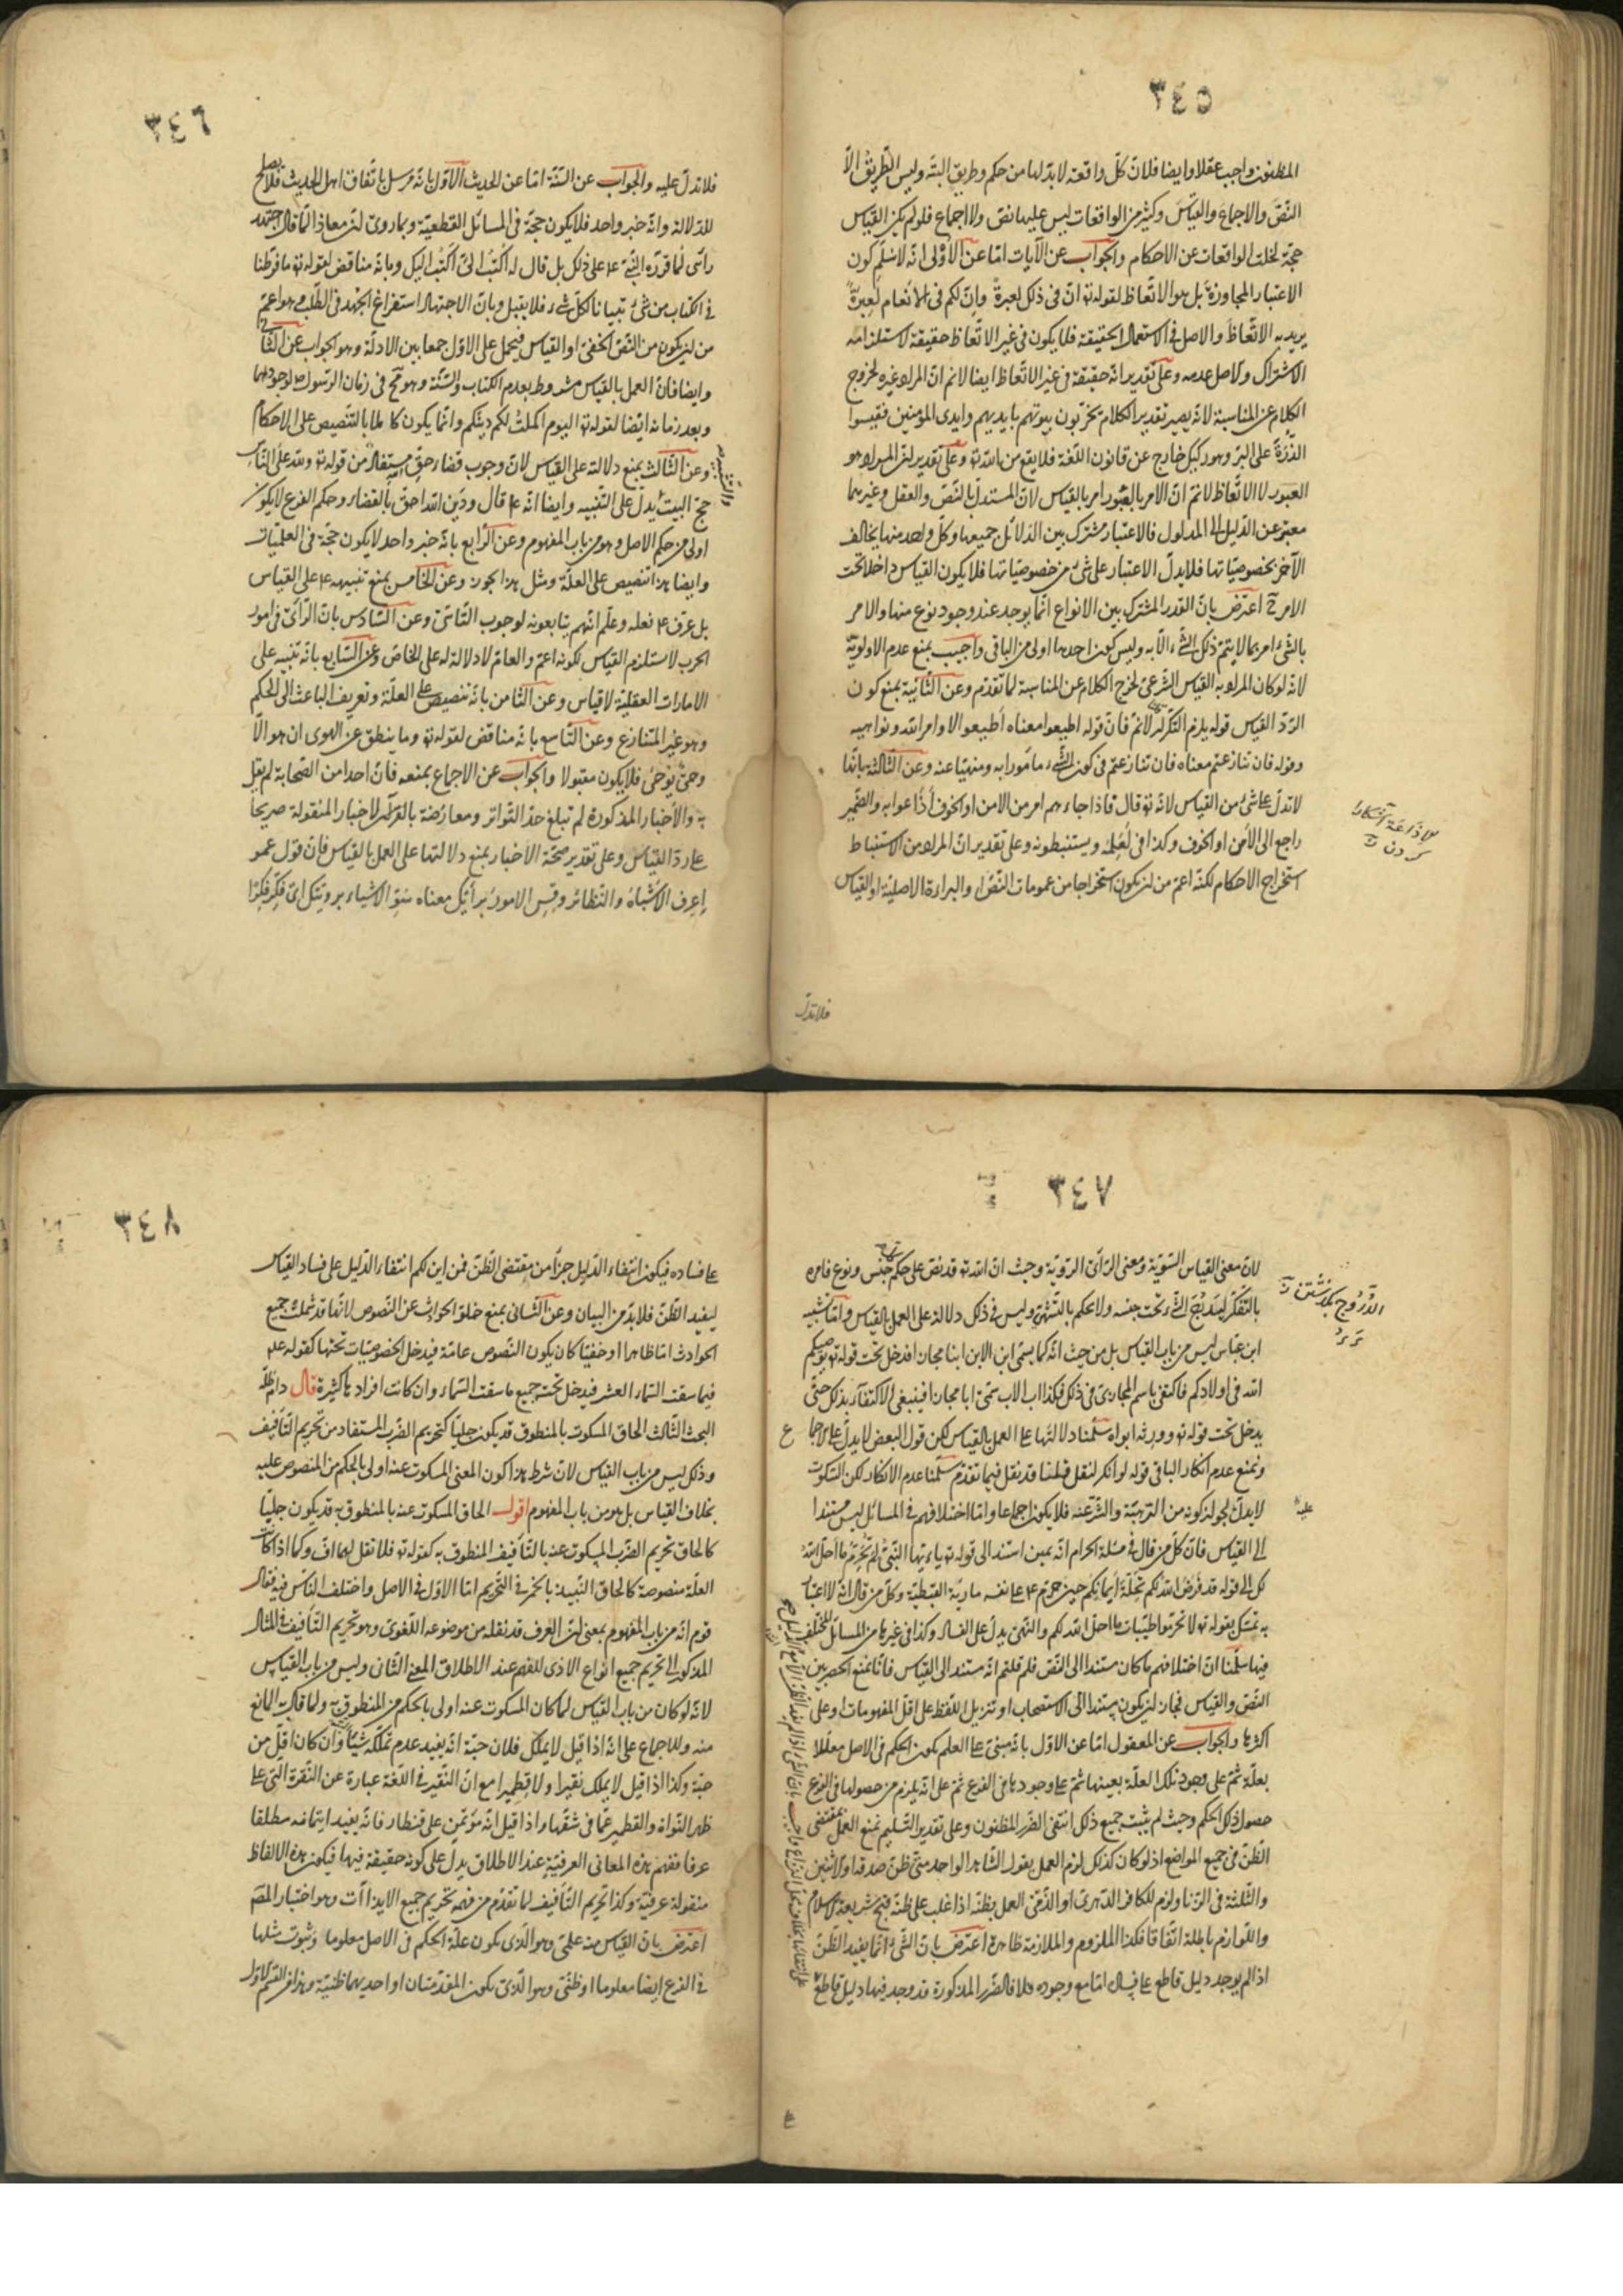 ٣٤٥
المظنون واجب عقلا وايضا فلان كلّ واقعة لابدّ لها من حكم وطريق البتّة وليس الطّريق الّا
النصّ والاجماع والقياسَ وكثير من الواقعات ليس عليها نصّ ولا اجماع فلولم يكن القياس
حجّة لخلت الواقعات عن الاحكام والجواب عن الآيات امّا عن الأولى انّه لا نسلّم كون
الاعتبار المجاوزةَ بل هو الاتّعاظ لقوله تع انّ فى ذلك لعبرةً وإنّ لكم فى الانعام لَعِبرةً
يريد به الاتّعاظَ والاصل فى الاستعمال الحقيقة فلا يكون فى غير الاتّعاظ حقيقة لاستلزامه
الاشتراك والاصل عدمه وعلى تقدير انّه حقيقة فى غير الاتّعاظ ايضا لانم انّ المراد غيره لخروج
الكلام عن المناسبة لانّه يصير تقدير الكلام يخربون بيوتهم بايديهم وايدى المؤمنين فقيسوا
الذّرةَ على البرّ وهو ركيك خارج عن قانون اللّغة فلا يقع من الله تع وعلى تقدير ان المراد هو
العبور لا الاتّعاظ لانم انّ الامر بالعبور امر بالقياس لانّ المستدلّ بالنّصّ والعقل وغيرهما
معتبر عن الدّليل الى المدلول فالاعتبار مشترك بين الدّلائل جميعها وكلّ واحد منها يخالف
الآخر بخصوصيّاتها فلا يدلّ الاعتبار على شئ من خصوصيّاتها فلا يكون القياس داخلا تحت
الامر ح اعترض بانّ القدر المشترك بين الانواع انّما يوجد عند وجود نوع منها والامر
بالشّئ امر بما لا يتمّ ذلك الشّئ الّا به وليس كون احدها اولى من الباقى واجيب بمنع عدم الاولويّة
لانّه لو كان المراد به القياس الشّرعىّ لخرج الكلام عن المناسبة لما تقدّم وعن الثّانية بمنع كون
الرّدّ القياس قوله يلزم التّكرار لانم فانّ قوله اطيعوا معناه أطيعوا اوامر الله ونواهيه
وقوله فان تنازعتم معناه فان تنازعتم فى كون الشّئ مأمورا به ومنهيّا عنه وعن الثّالثة بانّها
لا تدلّ على شئ من القياس لانّه تع قال فاذا جاءهم امر من الامن او الخوف أذاعوا به والضّمير
راجع الى الأمن او الخوف وكذا فى لَعَلِمَهُ ويستنبطونه وعلى تقدير انّ المراد من الاستنباط
استخراج الاحكام لكنّه اعمّ من ان يكون استخراجا من عمومات النّصّ او البراءة الاصليّة او القياس
الاذاعة آشكارا
كردن
فلا تدلّ
٣٤٦
فلا تدلّ عليه والجواب عن السّنّة امّا عن الحديث الاوّل بانّه مرسل باتّفاق اهل الحديث فلا يصلح
للدّلالة وانّه خبر واحد فلا يكون حجّة فى المسائل القطعيّة وبما روى ان معاذا لمّا قال اجتهد
رأى لما قرّره النّبىّ ع على ذلك بل قال له اكتب الىّ أكتب اليك وبانّه مناقض لقوله تع ما فرّطنا
فى الكتاب من شئ تبيانا لكلّ شئ فلا يقبل وبانّ الاجتهاد استفراغ الجهد فى الطّلب وهو اعمّ
من ان يكون من النّصّ الخفىّ او القياس فيحمل على الاوّل جمعا بين الادلّة وهو الجواب عن الثّانى
وايضا فانّ العمل بالقياس مشروط بعدم الكتاب والسّنّة وهو ممتنع فى زمان الرّسول ص لوجودهما
وبعد زمانه ايضا لقوله تع اليوم اكملت لكم دينكم وانّما يكون كاملا بالتّنصيص على الاحكام
وعن الثّالث بمنع دلالته على القياس لانّ وجوب قضاء حقّ الله مستفاد من قوله تع ولله على النّاس
حجّ البيت يدلّ على التّنبيه وايضا انّه ع قال ودَين الله احقّ بالقضاء وحكم الفرع لا يكون
اولى من حكم الاصل وهو من باب المفهوم وعن الرّابع بانّه خبر واحد لا يكون حجّة فى العلميّات
وايضا هذا تنصيص على العلّة ومثل هذا يجوز وعن الخامس بمنع تنبيهه ع على القياس
بل عرف ع فعله وعلم انّهم يتابعونه لوجوب التّاسّى وعن السّادس بانّ الرّأى فى امور
الحرب لا يستلزم القياس لكونه اعمّ والعامّ لا دلالة له على الخاصّ وعن السّابع بانّه تنبيه على
الامارات العقليّة لا قياس وعن الثّامن بانّه تنصيص على العلّة وتعريف الباعث الى الحكم
وهو غير المتنازع وعن التّاسع بانّه مناقض لقوله تع وما ينطق عن الهوى ان هو الّا
وحىٌ يُوحَىٰ فلا يكون مقبولا والجواب عن الاجماع بمنعه فانّ احدا من الصّحابة لم يقل
به والأخبار المذكورة لم تبلغ حدّ التّواتر ومعارضة بالقرآن والاخبار المنقولة صريحا
على ردّ القياس وعلى تقدير صحّة الأخبار بمنع دلالتها على العمل بالقياس فانّ قول عمر
إعرف الاشباه والنّظائر وقِس الامور برأيك معناه سوّ الاشياء برويّتك اى فكّر فكرا
٣٤٧
لانّ معنى القياس التّسوية ومعنى الرّأى الرّوية وحيث انّ الله تع قد نصّ على حكم جنس ونوع فامره
بالتّفكّر ليندرج الشّئ تحت جنسه ولا يحكم بالتّشهّى وليس فى ذلك دلالة على العمل بالقياس وامّا تشبيه
ابن عبّاس ليس من باب القياس بل من حيث انّه كما يسمّى ابن الابن ابنا مجازا فدخل تحت قوله تع يوصيكم
الله فى اولادكم فاكتفى باسم المجازىّ فى ذلك فكذا اب الاب سمّى ابا مجازا فينبغى الاكتفاء بذلك حتّى
يدخل تحت قوله تع وورثه ابواه سلّمنا دلالتها على العمل بالقياس لكن قول البعض لا يدلّ على الاجماع
ونمنع عدم انكار الباقى قوله لو انكر لنقل قلنا قد نقل فيما تقدّم سلّمنا عدم الانكار لكن السّكوت
لا يدلّ لجواز كونه من الترهبّة والشّرعة فلا يكون اجماعا وامّا اختلافهم فى المسائل ليس مستندا
الى القياس فانّ كلّ من قال فى مسئلة الحرام انّه يمين استند الى قوله تع يا ايّها النّبىّ لِمَ تُحرّم ما احلّ الله
لك الى قوله قد فرض الله لكم تحلّة أيمانكم حين حرّم ع على نفسه مارية القبطيّة وكلّ من قال انّه لا اعتبار
به تمسّك بقوله تع لا تحرّموا طيّبات ما احلّ الله لكم والنّهى يدلّ على الفساد وكذا فى غيرها من المسائل المختلف
فيها سلّمنا انّ اختلافهم ما كان مستندا الى النّصّ فلم قلتم انّه مستند الى القياس فانّا نمنع الحصر بين
النّصّ والقياس فجاز ان يكون مستندا الى الاستصحاب او تنزيل اللّفظ على اقلّ المفهومات او على
اكثرها والجواب عن المعقول امّا عن الاوّل بانّه مبنىّ على العلم بكون الحكم فى الاصل معلّلا
بعلّة ثمّ على وجود تلك العلّة بعينها ثمّ على وجودها فى الفرع ثمّ على انّه يلزم من حصولها فى الفرع
حصول ذلك الحكم وحيث لم يثبت جميع ذلك انتفى الضّرر المظنون وعلى تقدير التّسليم نمنع العمل بمقتضى
الظّنّ فى جميع المواضع اذ لو كان كذلك لزم العمل بقول الشّاهد الواحد متى ظنّ صدقه او الاثنين
والثّلثة فى الزّنا ولزم للكافر الدّهرىّ او الذّمّىّ العمل بظنّه اذا غلب على ظنّه قبح شريعة الاسلام
واللّوازم باطلة اتّفاقا فكذا الملزوم والملازمة ظاهرة اعترض بانّ الشّئ انّما يفيد الظّنّ
اذا لم يوجد دليل قاطع على فساده امّا مع وجوده فلا فالصّور المذكورة قد وجد فيها دليل قاطع
٣٤٨
على فساده فيكون انتفاء الدّليل جزأ من مقتضى الظّنّ فمن اين لكم انتفاء الدّليل على فساد القياس
ليفيد الظّنّ فلا بدّ من البيان وعن الثّانى بمنع خلوّ الحوادث عن النّصوص لانّها قد شملت جميع
الحوادث امّا ظاهرا او خفيّا كان يكون النّصوص عامّة فيدخل الخصوصيّات تحتها كقوله عم
فيما سقت السّماء العشر فيدخل تحت جميع ما سقت السّماء وان كانت افراده كثيرة قال دام ظلّه
البحث الثّالث الحاق المسكوت بالمنطوق قد يكون جليّا كتحريم الضّرب المستفاد من تحريم التّأفيف
وذلك ليس من باب القياس لانّ شرط هذا كون المعنى المسكوت عنه اولى بالحكم من المنصوص عليه
بخلاف القياس بل هو من باب المفهوم اقول الحاق المسكوت عنه بالمنطوق به قد يكون جليّا
كالحاق تحريم الضّرب المسكوت عنه بالتّأفيف المنطوق به كقوله تع فلا تقل لهما افّ وكما اذا كانت
العلّة منصوصة كالحاق النّبيذ بالخمر فى التّحريم امّا الاوّل فى الاصل واختلف النّاس فيه فقال
قوم انّه من باب المفهوم بمعنى ان العُرف قد نقله من موضوعه اللّغوىّ وهو تحريم التّأفيف فى المثال
المذكور الى تحريم جميع انواع الاذى للفهم عند الاطلاق المعنى الثّانى وليس من باب القياس
لانّه لو كان من باب القياس لما كان المسكوت عنه اولى بالحكم من المنطوق به ولما قال به المانع
منه وللاجماع على انّه اذا قيل لا يملك فلان حبّة انّه يفيد عدم تملّكه شيئا وان كان اقلّ من
حبّة وكذا اذا قيل لا يملك نقيرا ولا قطميرا مع انّ النّقير فى اللّغة عبارة عن النّقرة الّتى على
ظهر النّواة والقطمير عمّا فى شقّها واذا قيل انّه مؤتمن على قنطار فانّه يفيد ايتمانه مطلقا
عرفا ففهم هذه المعانى العرفيّة عند الاطلاق يدلّ على كونه حقيقة فيها فيكون هذه الالفاظ
منقولة عرفيّة وكذا تحريم التّأفيف لما تقدّم من فهم تحريم جميع الايذاآت وهو اختيار المصنّف
اعترض بانّ القياس منه علمىّ وهو الّذى يكون علّة الحكم فى الاصل معلوما وثبوت مثلها
فى الفرع ايضا معلوما او ظنّىّ وهو الّذى يكون المقدّمتان او احديهما ظنّيّة وهذا من القسم الاوّل